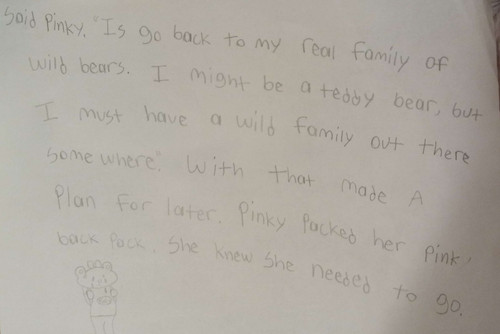 said Pinky. "Is go back to my real family of
wild bears. I might be a teddy bear, but
I must have a wild family out there
some where". With that made A
Plan for later. Pinky Packed her Pink
back Pack. She knew she needed to go.